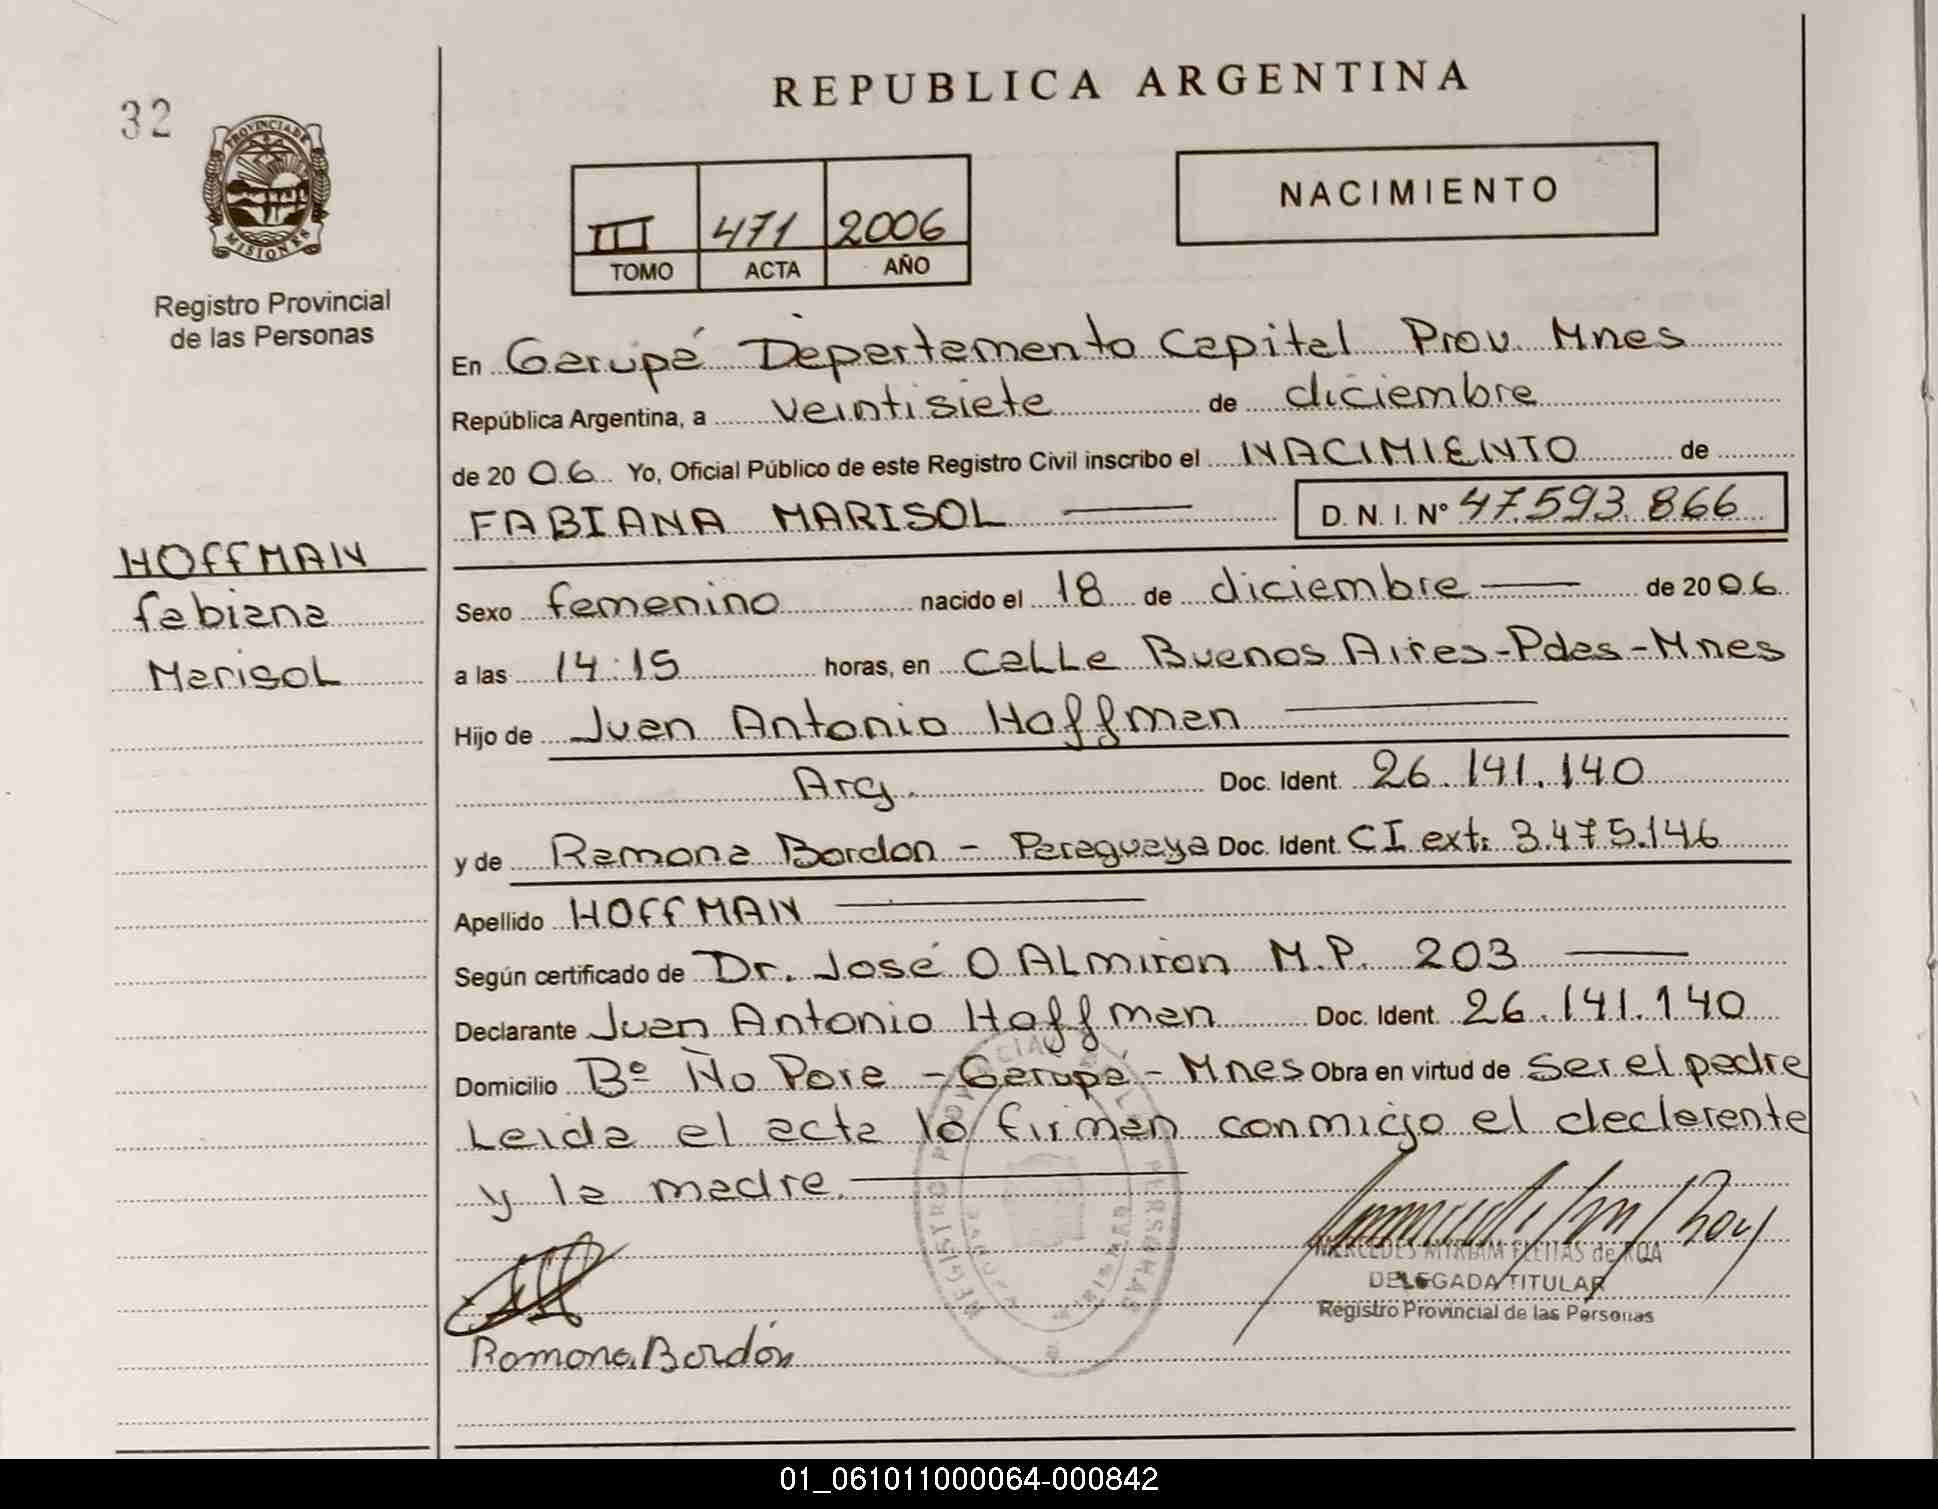 REPUBLICA ARGENTINA
32
PROVINCIA DE
MISIONES
Registro Provincial
de las Personas
III 471 2006
TOMO ACTA AÑO
NACIMIENTO
En Garupá Departamento Capital Prov. Mnes
República Argentina, a veintisiete de diciembre
de 2006 Yo, Oficial Público de este Registro Civil inscribo el NACIMIENTO de
FABIANA MARISOL D. N. I. Nº 47.593.866
HOFFMAN
Fabiana
Marisol
Sexo femenino nacido el 18 de diciembre de 2006
a las 14:15 horas, en calle Buenos Aires-Pdas-Mnes
Hijo de Juan Antonio Hoffman
Arg. Doc. Ident. 26.141.140
y de Ramona Bordon - Paraguaya Doc. Ident. CI ext: 3.475.146
Apellido HOFFMAN
Según certificado de Dr. José O Almiron M.P. 203
Declarante Juan Antonio Hoffman Doc. Ident. 26.141.140
Domicilio Bº Ño Pora - Garupá - Mnes Obra en virtud de ser el padre
Leida el acta lo firman conmigo el declarante
y la madre.
REGISTRO PROVINCIAL DE LAS PERSONAS
MERCEDES MYRIAM FLEITAS de ROA
DELEGADA TITULAR
Registro Provincial de las Personas
Ramona Bordón
01_061011000064-000842